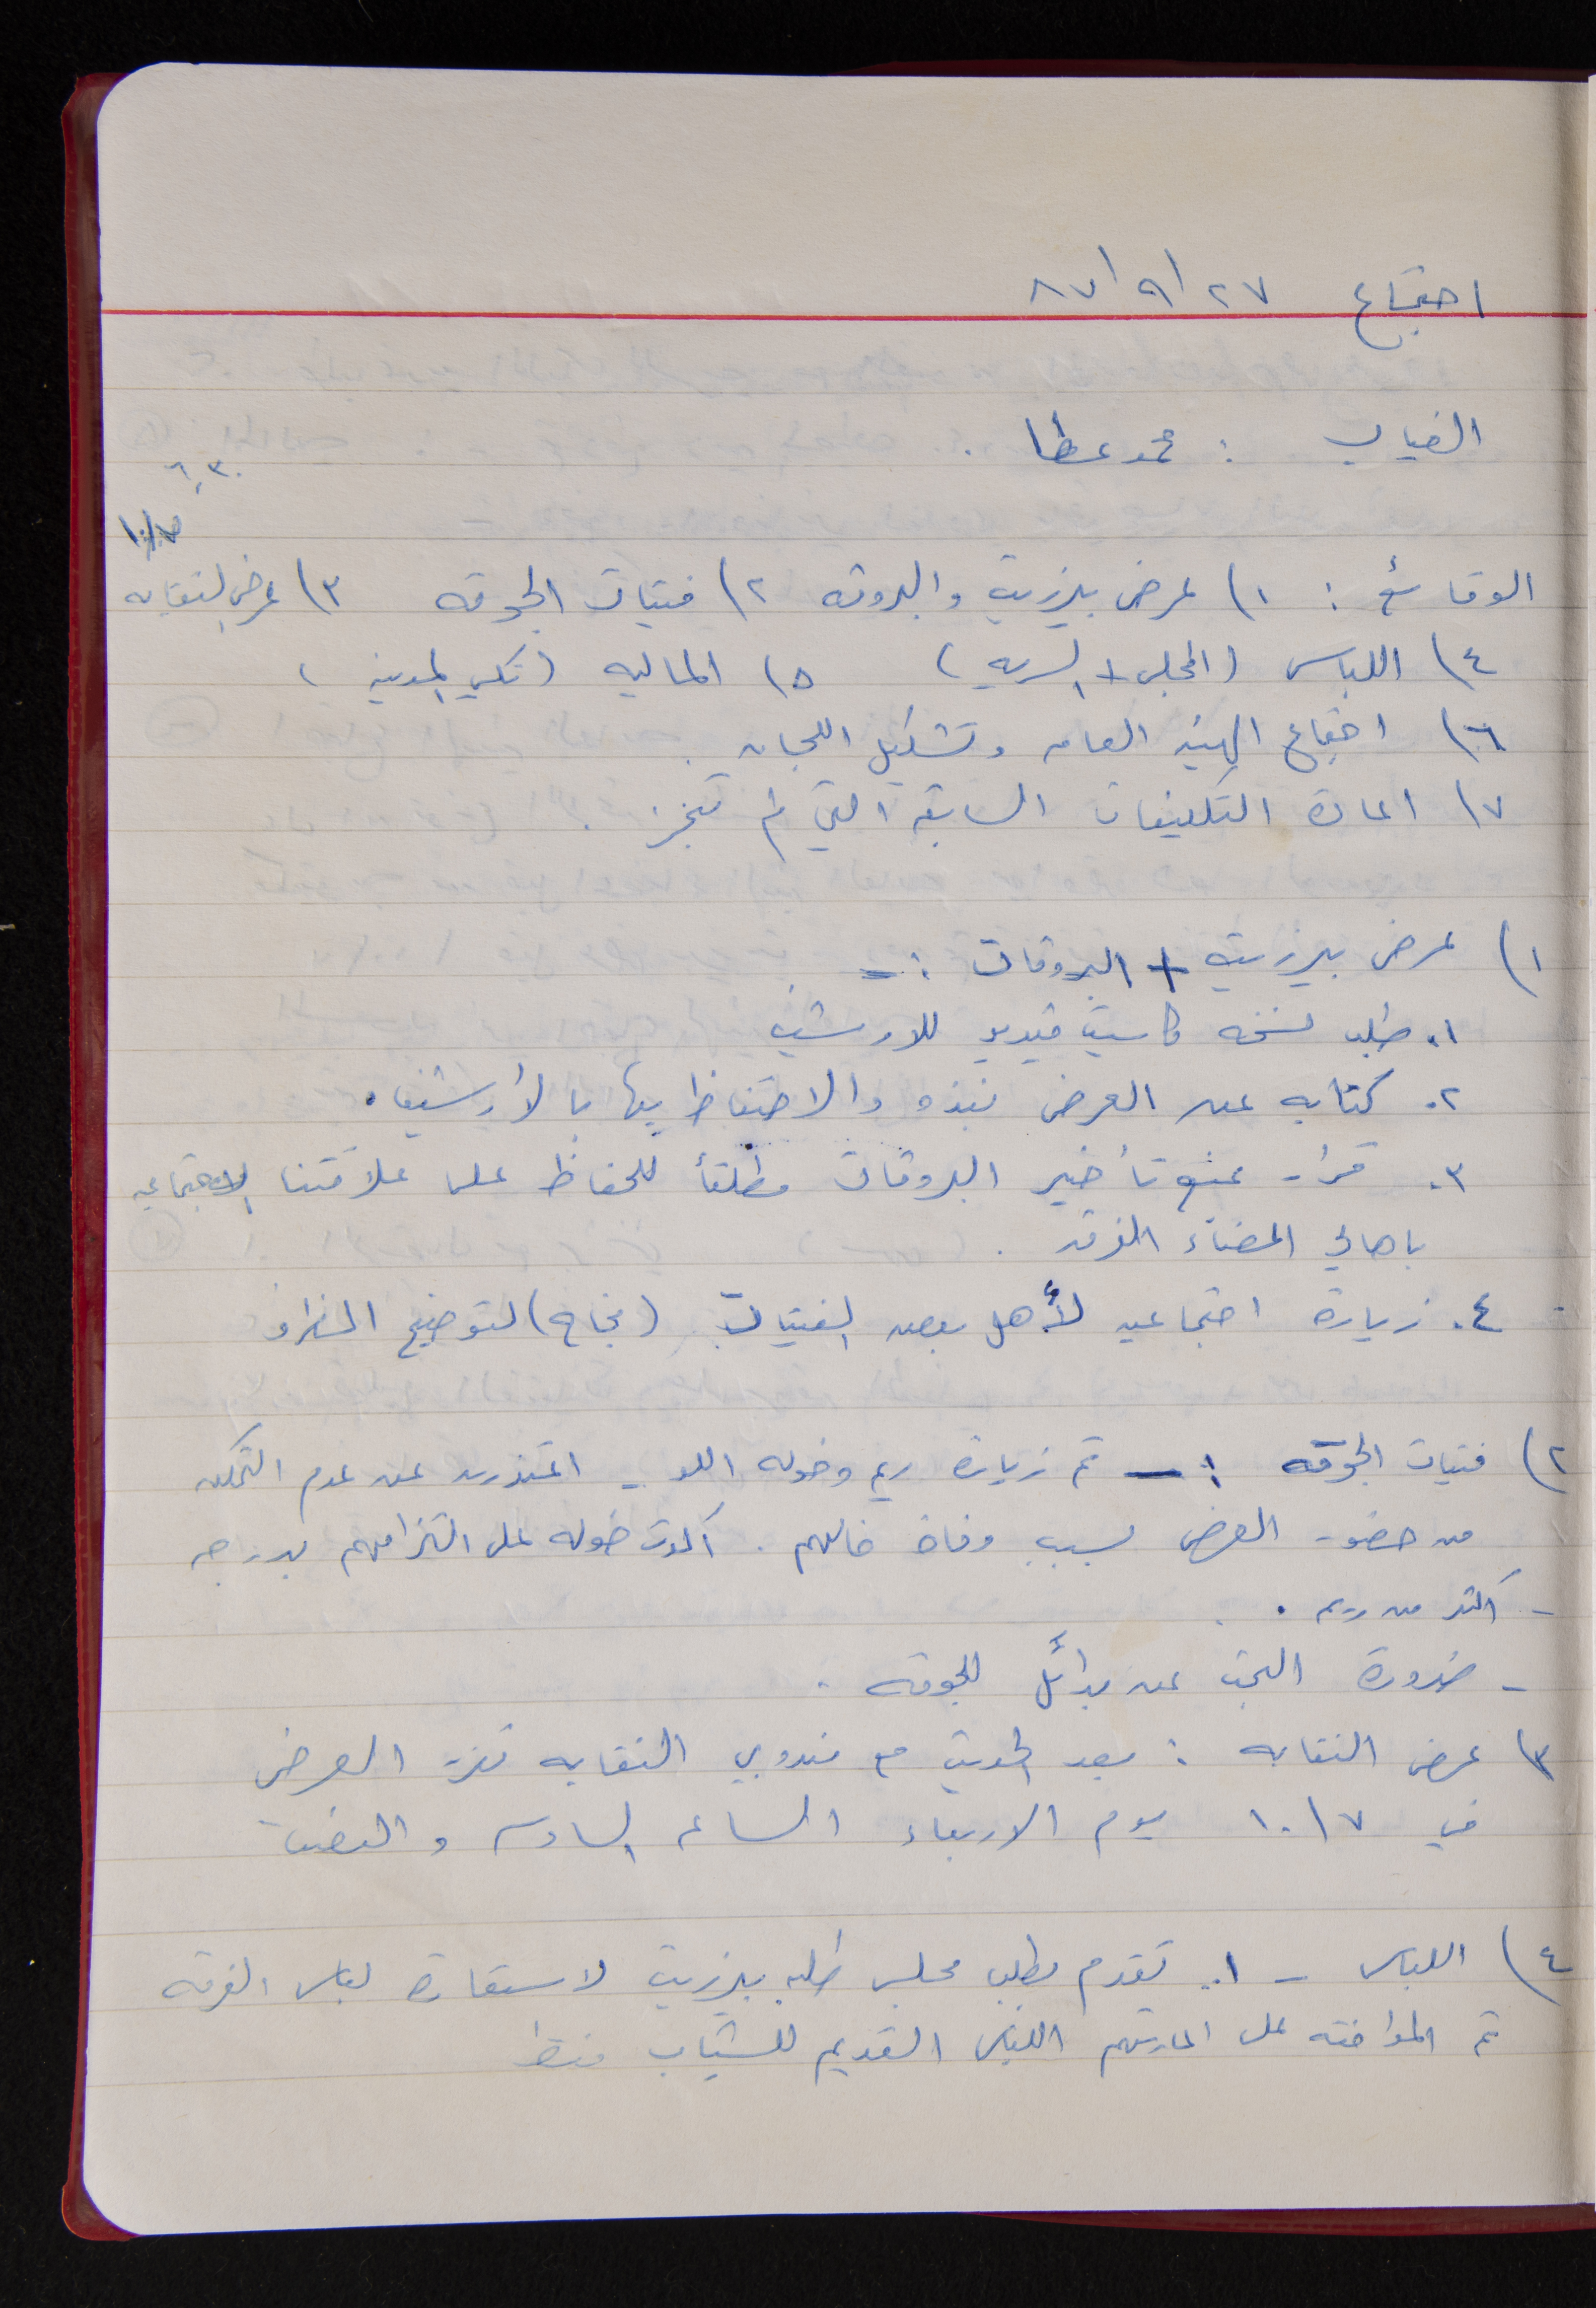 اجتماع ٢٧/٩/٨٧
الغياب : محمد عطا .
٦,٣٠
١٠/٧
الوقائع : ١) عرض بيرزيت والبروفه ٢) فتيات الجوقه ٣) عرض النقابه
٤) اللباس (المجلس + السريه) ٥) الماليه (المدينه)
٦) اجتماع الهيئه العامه وتشكيل اللجان .
٧) اعادة التكليفات السابقه التي لم تنجز .
١) عرض بيرزيت + البروفات :-
١. طلب نسخه كاسيت فيديو للارشيف
٢. كتابه عن العرض نبذه والاحتفاظ بها بالأرشيف .
٣. قرار بمنع تأخير البروفات مطلقأ للحفاظ على علاقتنا الاجتماعيه
باهالي اعضاء الفرقه .
٤. زيارة اجتماعيه لأهل بعض الفتيات (نجاح) لتوضيح الظروف
٢) فتيات الجوقه :- تم زيارة ريم وخوله اللو - اعتذرن عن عدم التمكن
من حضور العرض بسبب وفاة خالهم . أكدت خوله على التزامهم بدرجه
- أكثر من ريم .
- ضرورة البحث عن بدائل للجوقه .
٣) عرض النقابه : بعد الحديث مع مندوبي النقابه تقرر العرض
في ١٠/٧ يوم الاربعاء الساعه السادسه والنصف
٤) اللباس - ١. تقدم بطلب مجلس طلبه بيرزيت لاستعارة لباس الفرقه
تم الموافقه على اعارتهم اللباس القديم للشباب فقط